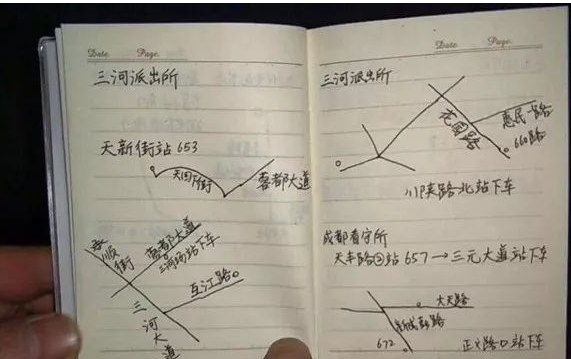 Date. Page.
三河派出所
天新街站 653
天回街
蓉都大道
顺街
蓉都大道
三河场站下车
互江路
三河大道
Date. Page.
三河派出所
花园路
惠民路
660路
川陕路北站下车
成都看守所
天丰路口站 657→三元大道站下车
大天路
新成彭路
672
正义路口站下车